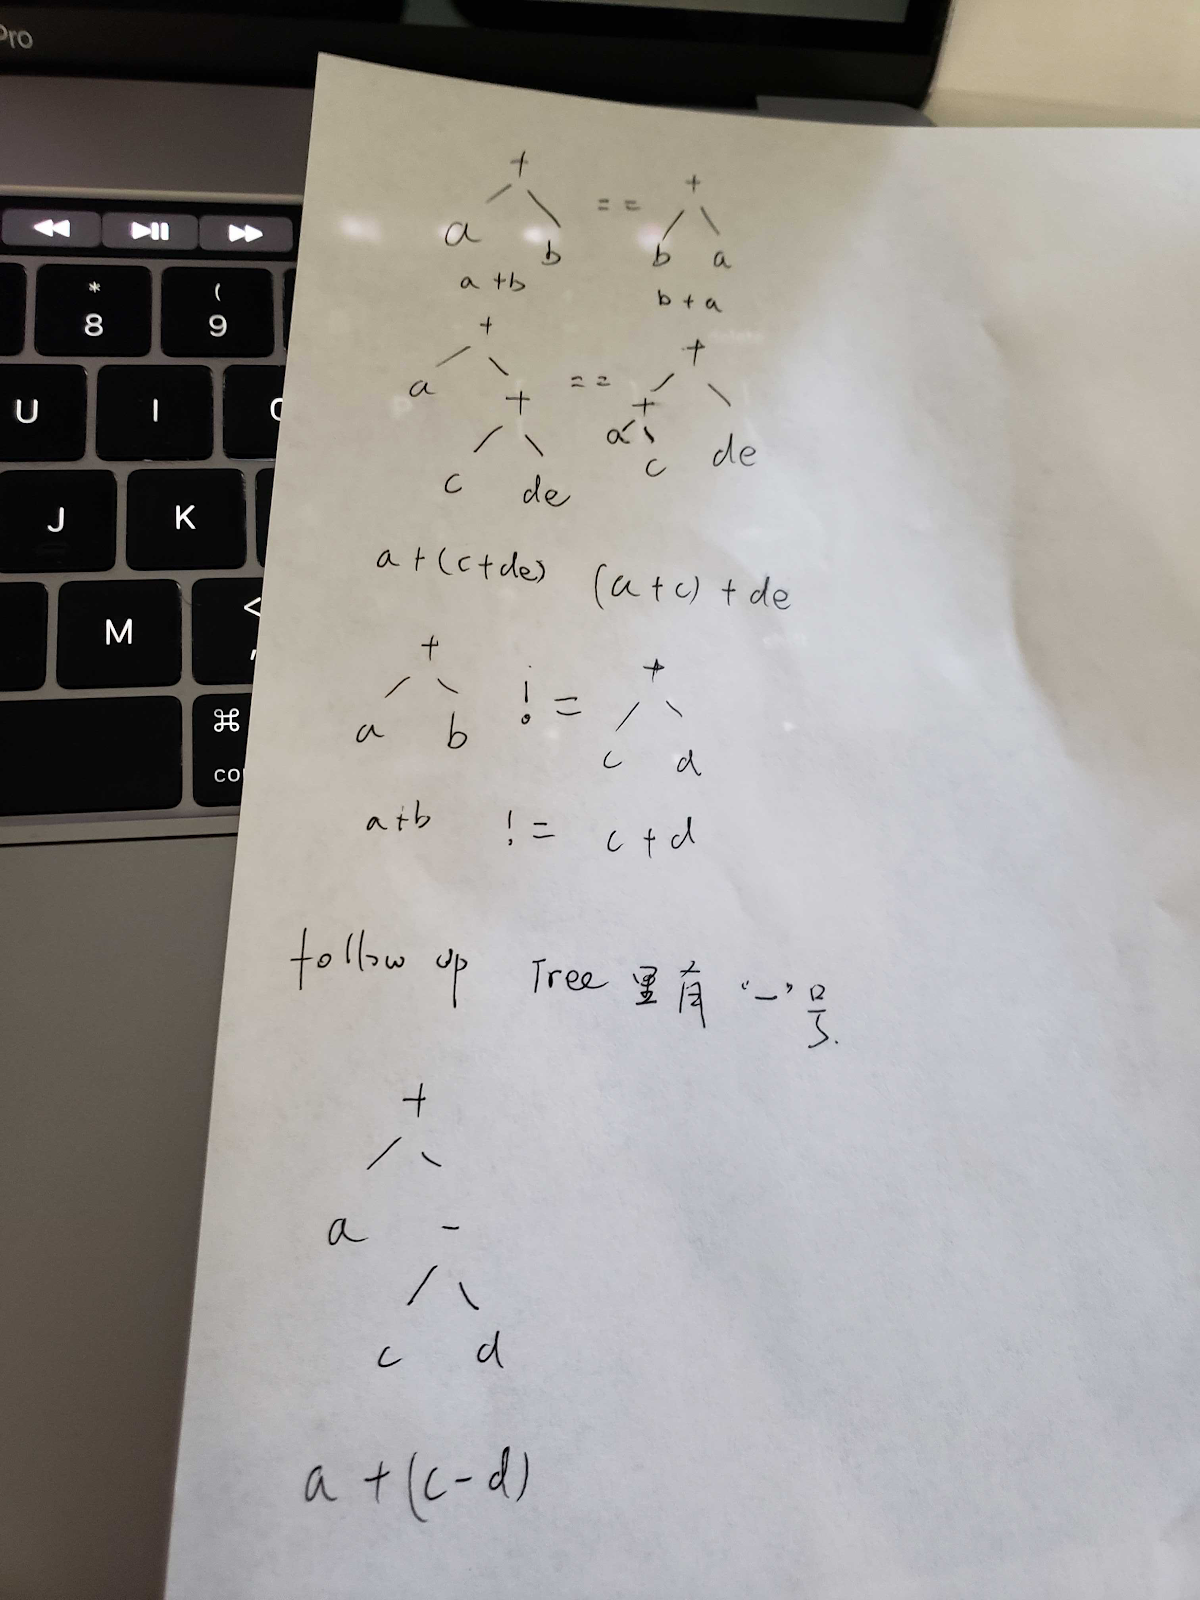 Pro
* 8
( 9
U I
J K
M <
,
⌘
+ +
a b == b a
a+b b+a
+ +
a + == + de
c de a c
a+(c+de) (a+c)+de
+ +
a b != c d
a+b != c+d
follow up Tree 里有 "-" 号.
+
a -
c d
a+(c-d)